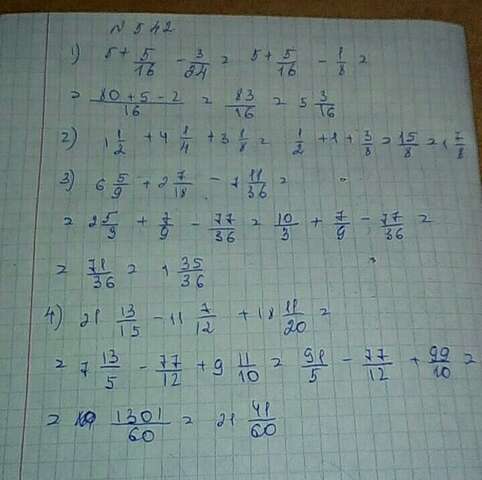 N 542
1) 5 + 5/16 - 3/24 = 5 + 5/16 - 1/8 =
= (80 + 5 - 2)/16 = 83/16 = 5 3/16
2) 1 1/2 + 4 1/4 + 3 1/8 = 1/2 + 1 + 3/8 = 15/8 = 1 7/8
3) 6 5/9 + 2 7/18 - 7 11/36 =
= 2 5/9 + 7/9 - 77/36 = 10/3 + 7/9 - 77/36 =
= 71/36 = 1 35/36
4) 21 13/15 - 11 7/12 + 18 11/20 =
= 7 13/5 - 77/12 + 9 11/10 = 91/5 - 77/12 + 99/10 =
= 1301/60 = 21 41/60